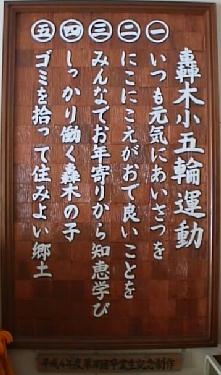 轟木小五輪運動
一 いつも元気にあいさつを
二 にこにこえがおで良いことを
三 みんなでお年寄りから知恵学び
四 しっかり働く轟木の子
五 ゴミを拾って住みよい郷土